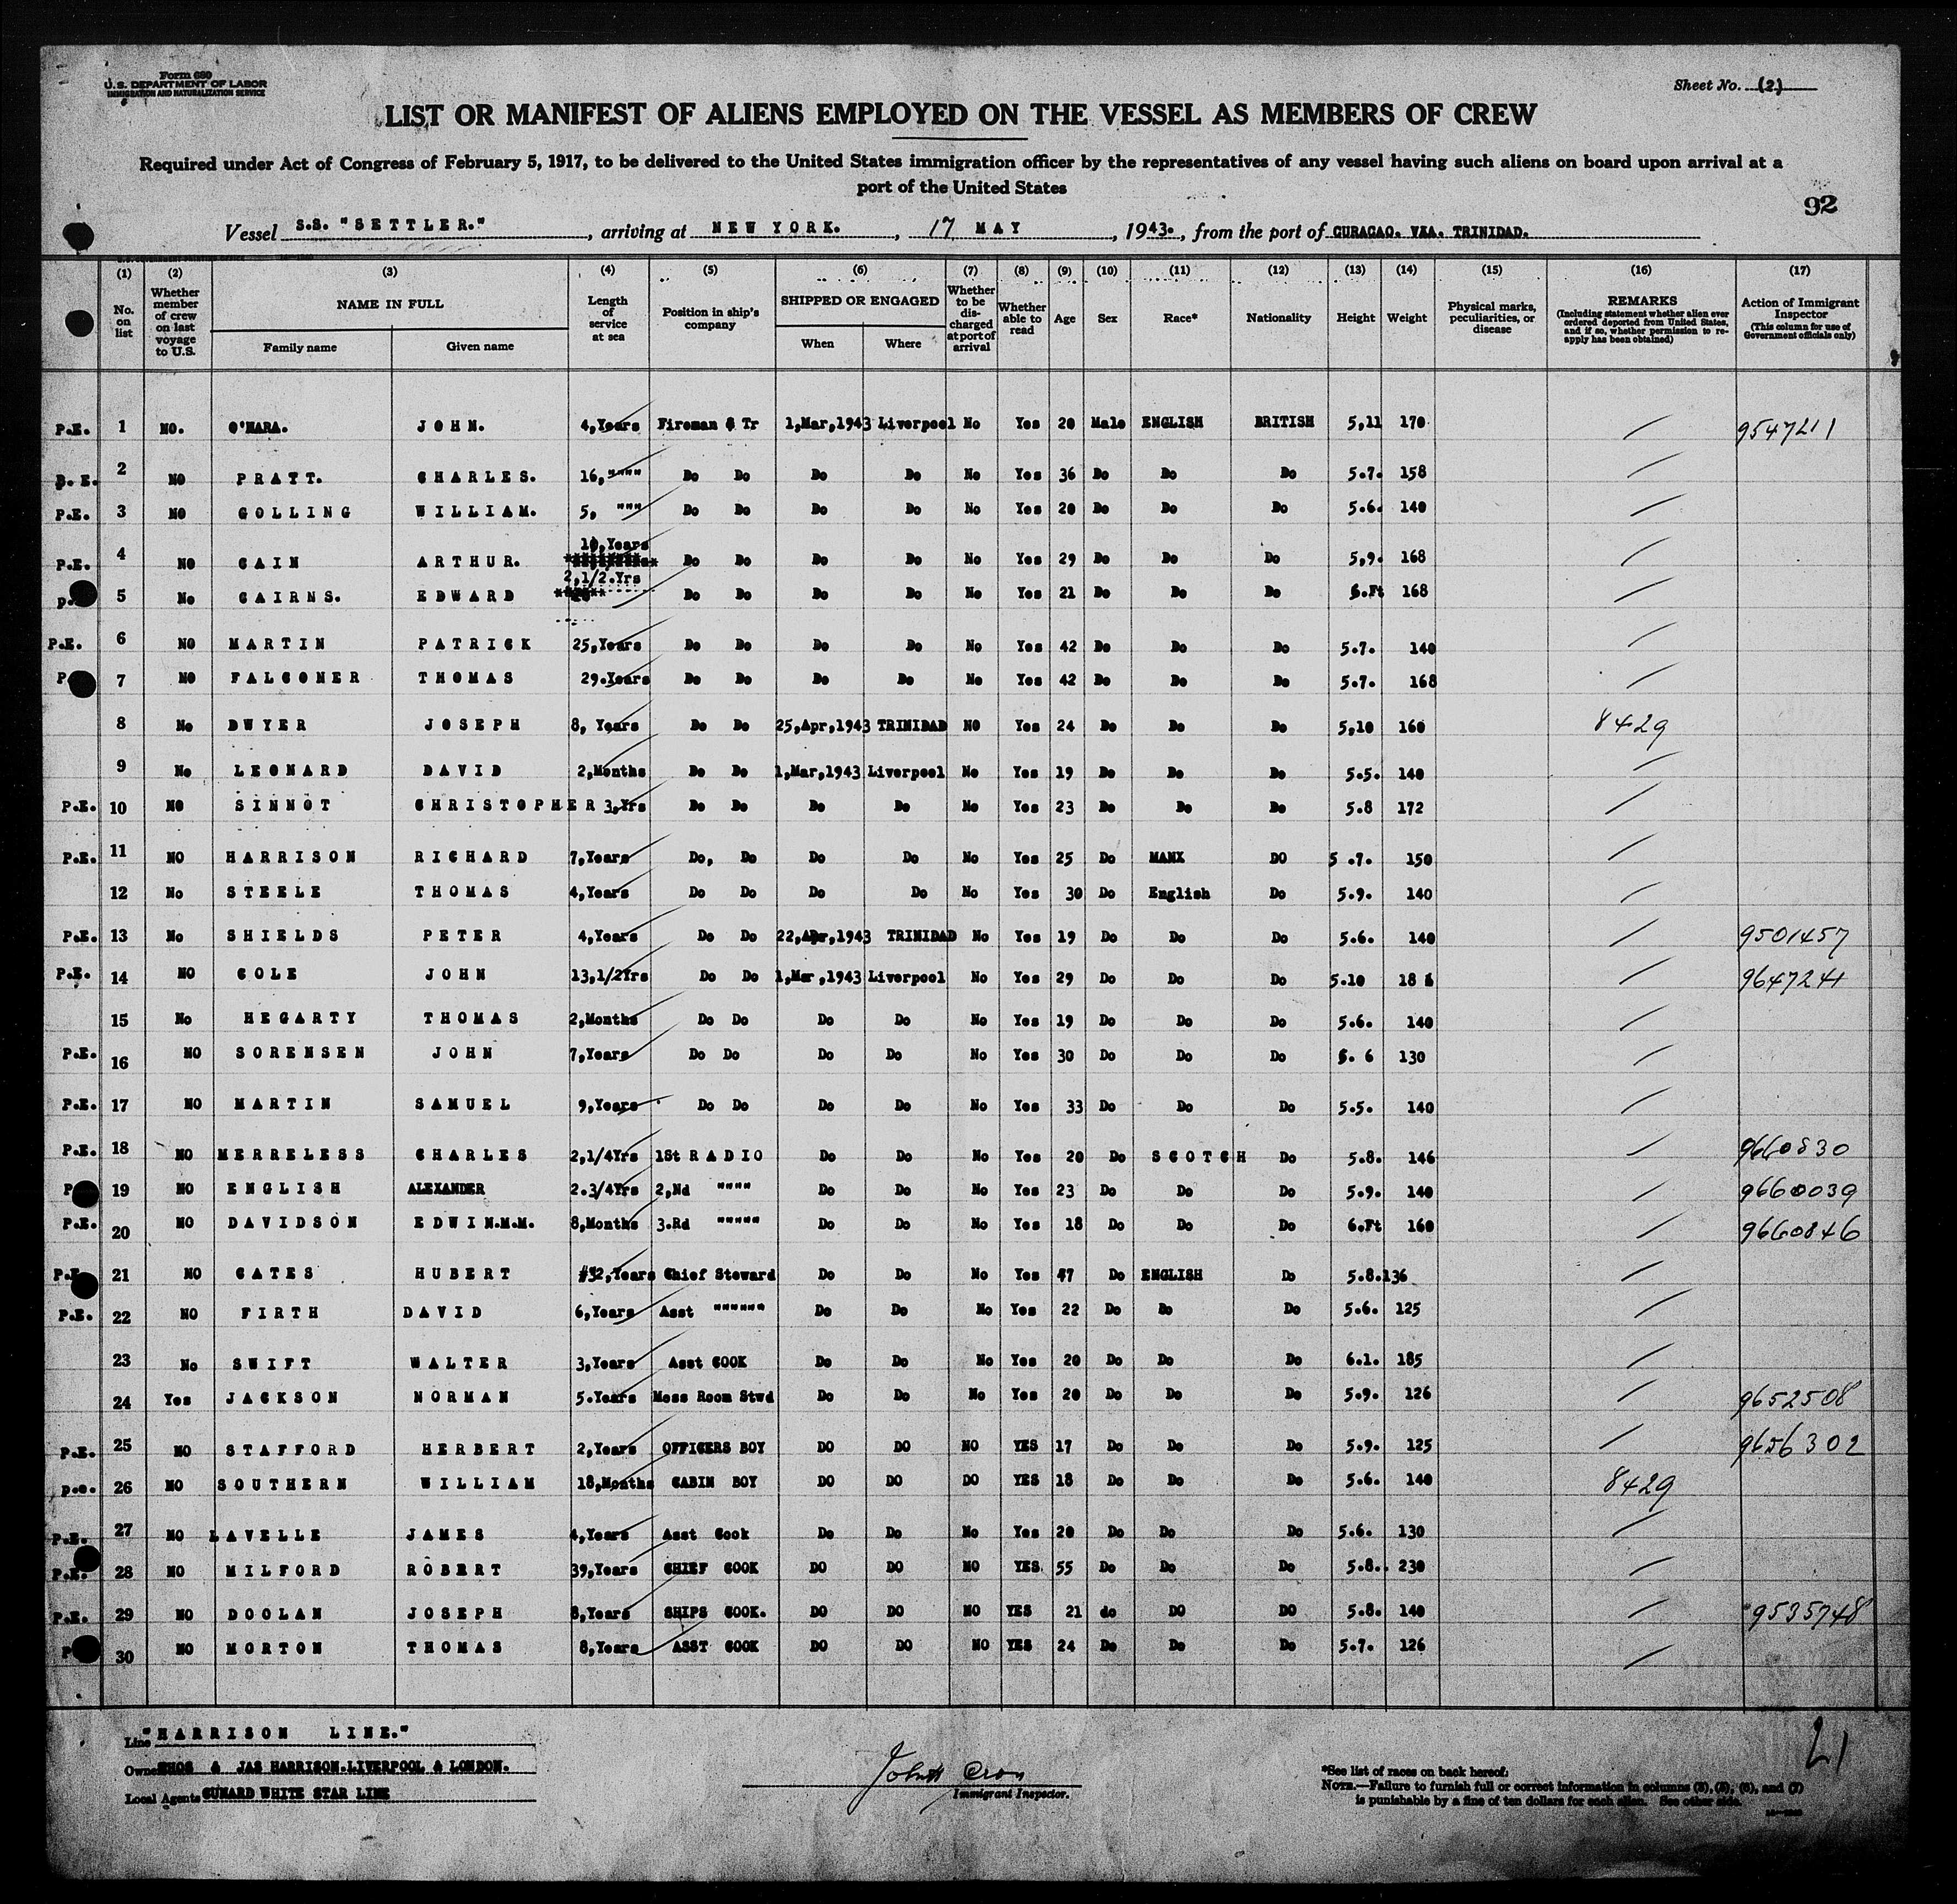 Form 680
U.S. DEPARTMENT OF LABOR
IMMIGRATION AND NATURALIZATION SERVICE
Sheet No. (2)
LIST OR MANIFEST OF ALIENS EMPLOYED ON THE VESSEL AS MEMBERS OF CREW
Required under Act of Congress of February 5, 1917, to be delivered to the United States immigration officer by the representatives of any vessel having such aliens on board upon arrival at a
port of the United States
92
Vessel S.S. "SETTLER.", arriving at NEW YORK., 17 MAY, 1943., from the port of CURACAO. VIA. TRINIDAD.
(1) (2) (3) (4) (5) (6) (7) (8) (9) (10) (11) (12) (13) (14) (15) (16) (17)
No. on list
Whether member of crew on last voyage to U.S.
NAME IN FULL
Family name Given name
Length of service at sea
Position in ship's company
SHIPPED OR ENGAGED
When Where
Whether to be discharged at port of arrival
Whether able to read
Age
Sex
Race*
Nationality
Height
Weight
Physical marks, peculiarities, or disease
REMARKS
(Including statement whether alien ever ordered deported from United States, and if so, whether permission to reapply has been obtained)
Action of Immigrant Inspector
(This column for use of Government officials only)
P.E. 1 NO. O'MARA. JOHN. 4,Years Fireman & Tr 1,Mar,1943 Liverpool No Yes 20 Male ENGLISH BRITISH 5,11 170 9547211
P.E. 2 NO PRATT. CHARLES. 16,"""" Do Do Do Do No Yes 36 Do Do Do 5.7. 158
P.E. 3 NO GOLLING WILLIAM. 5, """ Do Do Do Do No Yes 20 Do Do Do 5.6. 140
P.E. 4 NO CAIN ARTHUR. 10,Years Do Do Do Do No Yes 29 Do Do Do 5,9. 168
p. 5 No CAIRNS. EDWARD 2,1/2.Yrs Do Do Do Do No Yes 21 Do Do Do 6.Ft 168
P.E. 6 NO MARTIN PATRICK 25,Years Do Do Do Do No Yes 42 Do Do Do 5.7. 140
P. 7 NO FALCONER THOMAS 29.Years Do Do Do Do No Yes 42 Do Do Do 5.7. 168
8 No DWYER JOSEPH 8, Years Do Do 25,Apr,1943 TRINIDAD NO Yes 24 Do Do Do 5,10 160 8429
9 No LEONARD DAVID 2,Months Do Do 1,Mar,1943 Liverpool No Yes 19 Do Do Do 5.5. 140
P.E. 10 NO SINNOT CHRISTOPHER 3,Yrs Do Do Do Do No Yes 23 Do Do Do 5.8 172
P.E. 11 NO HARRISON RICHARD 7,Years Do, Do Do Do No Yes 25 Do MANX DO 5 .7. 150
12 No STEELE THOMAS 4,Years Do Do Do Do No Yes 30 Do English Do 5.9. 140
P.E. 13 No SHIELDS PETER 4,Years Do Do 22,Apr,1943 TRINIDAD No Yes 19 Do Do Do 5.6. 140 9501457
P.E. 14 NO COLE JOHN 13,1/2Yrs Do Do 1,Mar,1943 Liverpool No Yes 29 Do Do Do 5.10 9647241
15 No HEGARTY THOMAS 2,Months Do Do Do Do No Yes 19 Do Do Do 5.6. 140
P.E. 16 NO SORENSEN JOHN 7,Years Do Do Do Do No Yes 30 Do Do Do 5. 6 130
P.E. 17 NO MARTIN SAMUEL 9,Years Do Do Do Do No Yes 33 Do Do Do 5.5. 140
P.E. 18 NO MERRELESS CHARLES 2,1/4Yrs 1St RADIO Do Do No Yes 20 Do SCOTCH Do 5.8. 146 9660830
P. 19 NO ENGLISH ALEXANDER 2.3/4Yrs 2,Nd """" Do Do No Yes 23 Do Do Do 5.9. 140 9660039
P.E. 20 NO DAVIDSON EDWIN.M.M. 8,Months 3.Rd """"" Do Do No Yes 18 Do Do Do 6.Ft 160 9660846
P.E. 21 NO CATES HUBERT 32,Years Chief Steward Do Do No Yes 47 Do ENGLISH Do 5.8. 136
P.E. 22 NO FIRTH DAVID 6,Years Asst """""" Do Do No Yes 22 Do Do Do 5.6. 125
23 No SWIFT WALTER 3,Years Asst COOK Do Do No Yes 20 Do Do Do 6.1. 185
24 Yes JACKSON NORMAN 5.Years Mess Room Stwd Do Do No Yes 20 Do Do Do 5.9. 126 9652508
P.E. 25 NO STAFFORD HERBERT 2,Years OFFICERS BOY DO DO NO YES 17 Do Do Do 5.9. 125 9656302
p.e. 26 NO SOUTHERN WILLIAM 18,Months CABIN BOY DO DO DO YES 18 Do Do Do 5.6. 140 8429
P.E. 27 NO LAVELLE JAMES 4,Years Asst Cook Do Do No Yes 20 Do Do Do 5.6. 130
P.E. 28 NO MILFORD ROBERT 39,Years CHIEF COOK DO DO NO YES. 55 Do Do Do 5.8. 230
P.E. 29 NO DOOLAN JOSEPH 8,Years SHIPS COOK. DO DO NO YES 21 do DO DO 5.8. 140 9535748
P 30 NO MORTON THOMAS 8,Years ASST COOK DO DO NO YES 24 Do Do Do 5.7. 126
Line "HARRISON LINE."
Owners THOS & JAS HARRISON.LIVERPOOL & LONDON.
Local Agents CUNARD WHITE STAR LINE
Immigrant Inspector.
21
*See list of races on back hereof.
NOTE.—Failure to furnish full or correct information in columns (2), (3), (6), and (7)
is punishable by a fine of ten dollars for each alien. See other side.